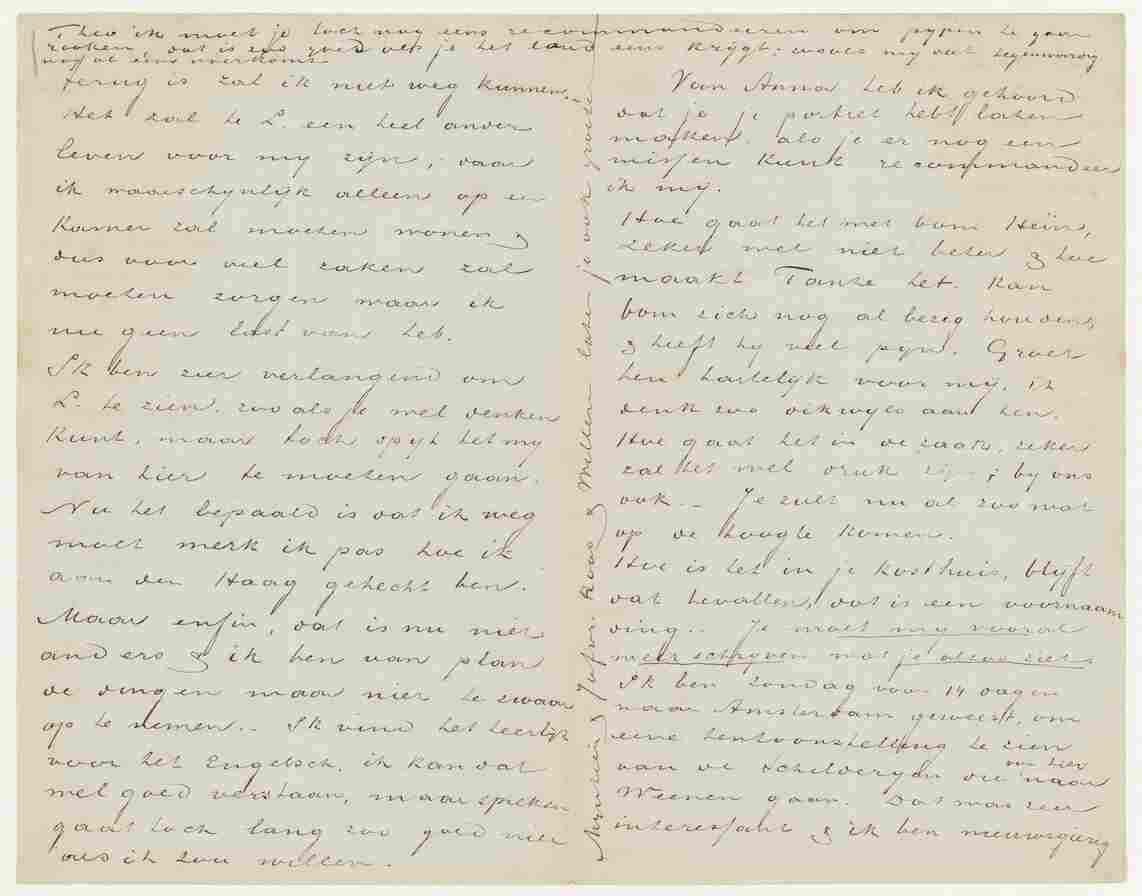 Theo ik moet je toch nog eens recommandeeren om pijpen te gaan
rooken, dat is zoo goed als je het land eens krijgt, zooals mij dat tegenwoordig
nog al eens overkomt.
terug is zal ik niet weg kunnen. –
Het zal te L. een heel ander
leven voor mij zijn, daar
ik waarschijnlijk alleen op een
kamer zal moeten wonen &
dus voor veel zaken zal
moeten zorgen waar ik
nu geen last van heb.
Ik ben zeer verlangend om
L. te zien, zoo als je wel denken
kunt, maar toch spijt het mij
van hier te moeten gaan.
Nu het bepaald is dat ik weg
moet merk ik pas hoe ik
aan den Haag gehecht ben.
Maar enfin, dat is nu niet
anders & ik ben van plan
de dingen maar niet te zwaar
op te nemen. – Ik vind het heerlijk
voor het Engelsch, ik kan dat
wel goed verstaan, maar spreken
gaat toch lang zoo goed niet
als ik zou willen.
Van Anna heb ik gehoord
dat je je portret hebt laten
maken, als je er nog een
missen kunt recommandeer
ik mij.
Hoe gaat het met oom Hein,
zeker wel niet beter & hoe
maakt Tante het. Kan
oom zich nog al bezig houden,
& heeft hij veel pijn. Groet
hen hartelijk voor mij, ik
denk zoo dikwijls aan hen.
Hoe gaat het in de zaak, zeker
zal het wel druk zijn; bij ons
ook. – Je zult nu al zoo wat
op de hoogte komen.
Hoe is het in je kosthuis, blijft
dat bevallen, dat is een voornaam
ding. – Je moet mij vooral
meer schrijven wat je alzoo ziet.
Ik ben zondag voor 14 dagen
naar Amsterdam geweest, om
eene tentoonstelling te zien
van de schilderijen die van hier naar
Weenen gaan. Dat was zeer
interessant & ik ben nieuwsgierig
& Jufvr. Roos & Willem laten je ook groeten